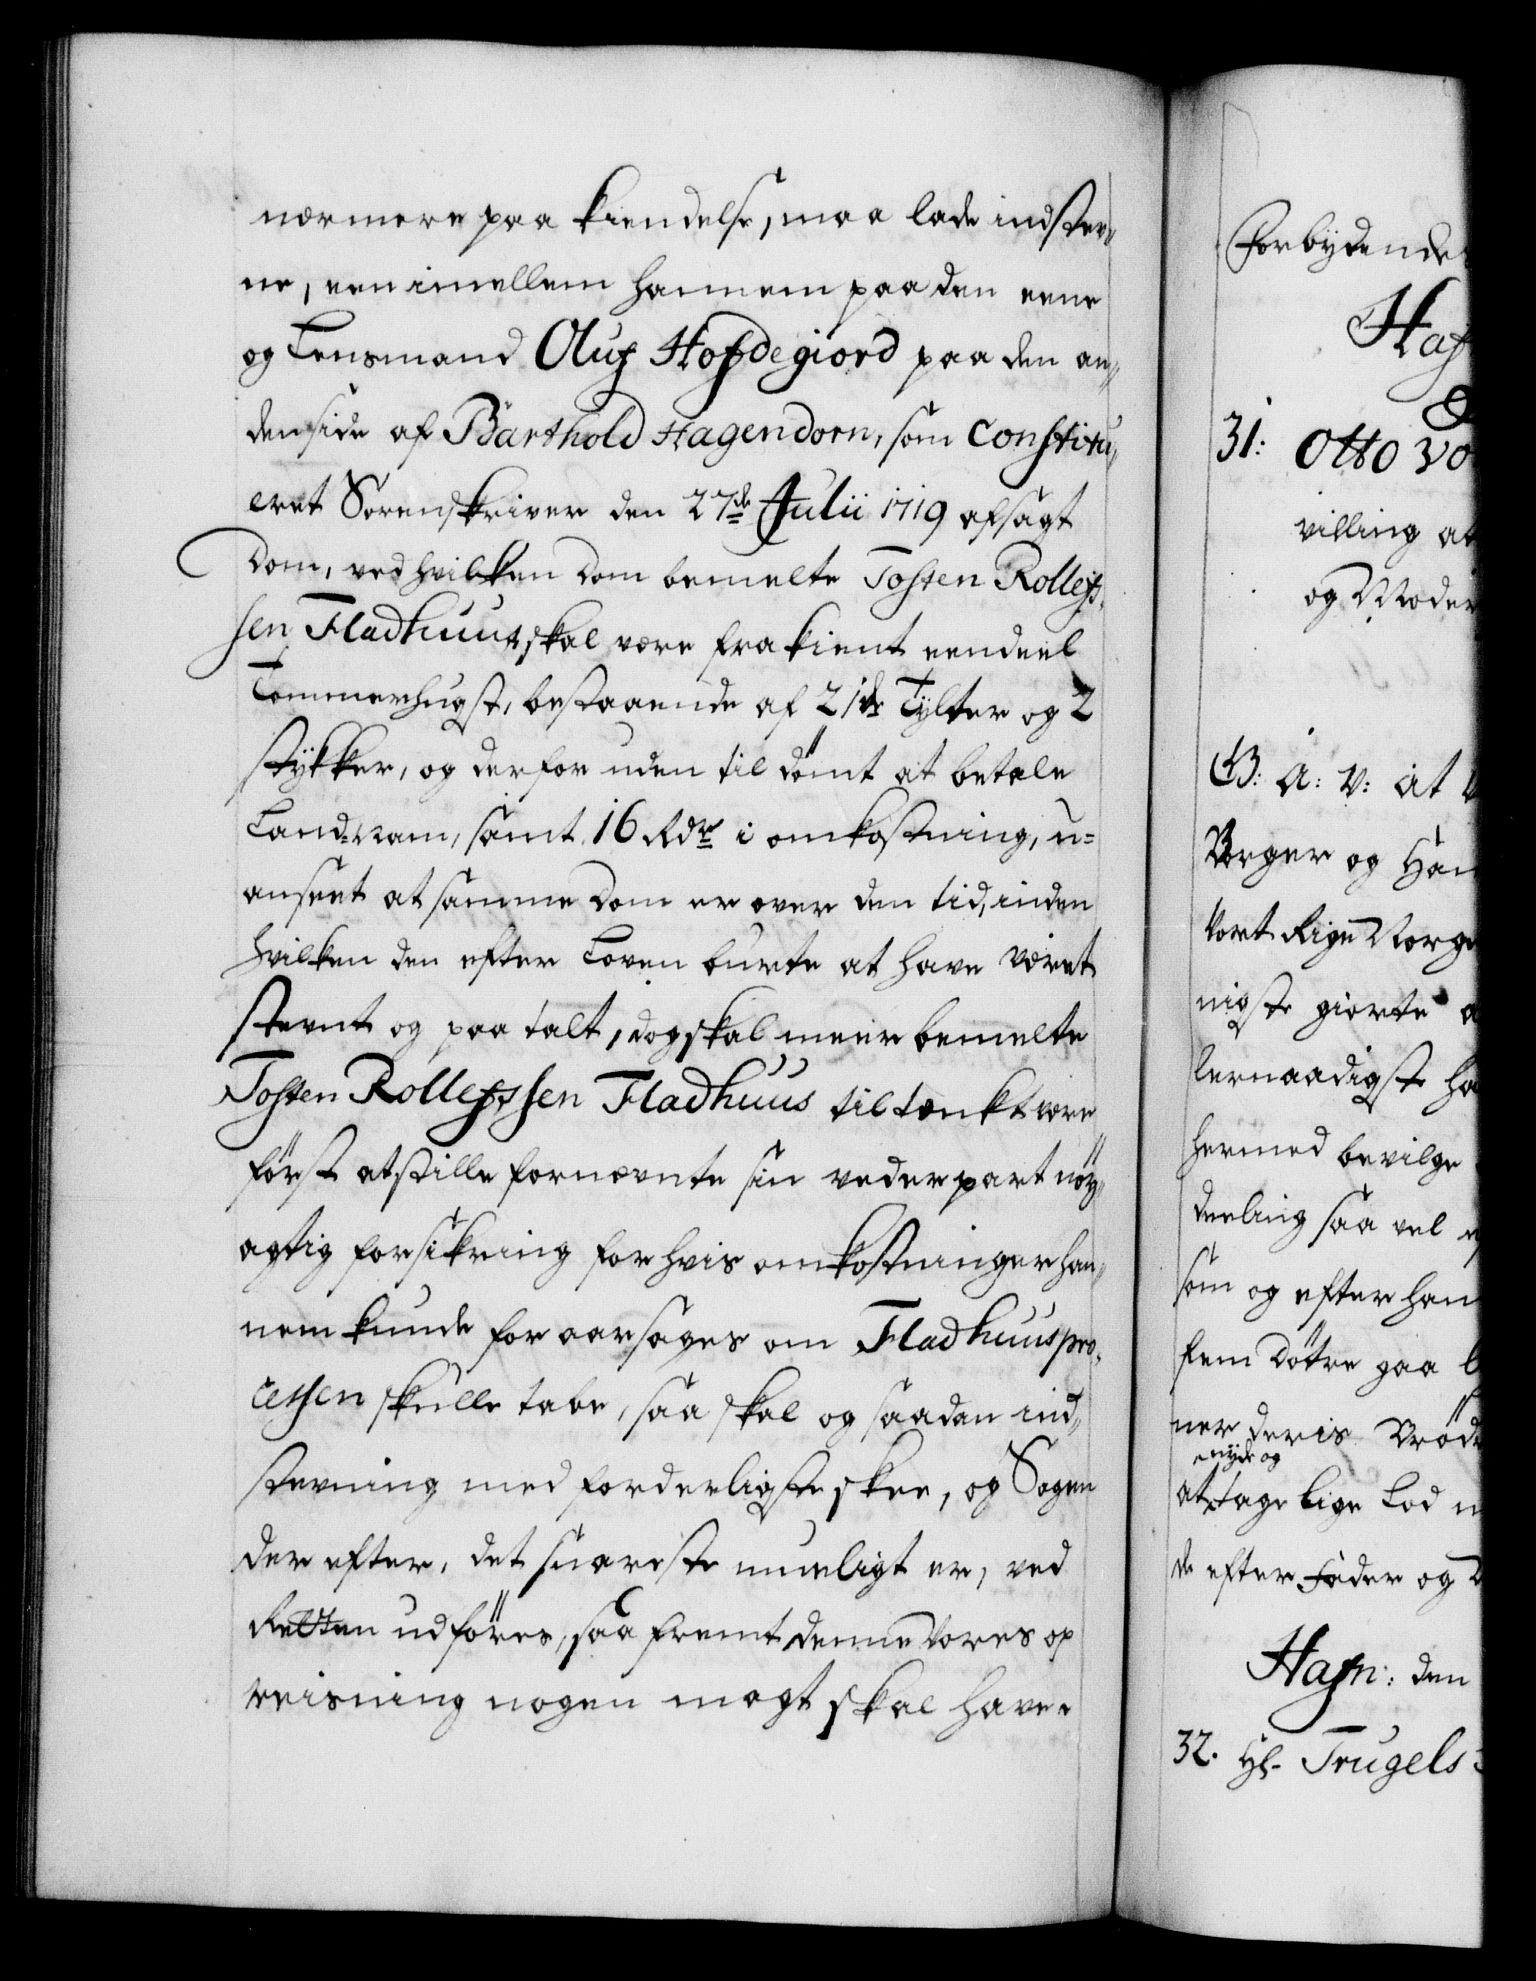 nærmere paa kiendelse, maa lade indstev„
ne, een imellem hannem paa den eene
og Lensmand Oluf Hofdegiord paa den an„
den side af Barthold Hagendorn, som Constitu„
eret Sorenskriver den 27de Julii 1719 afsagt
Dom, ved hvilken Dom bemelte Tosten Rolleſs„
sen Fladhuus skal være frakient eendeel
Tømmerhugst, bestaaende af 21de Tylter og 2
stÿkker, og derforuden til dömt at betale
Land-Nam, samt 16 Rdr i omkostning, u=
anseet at samme Dom er over den tid, inden
hvilken den efter Loven burte at have været
stevnt og paatalt, dog skal meerbemelte
Tosten Rollefssen Fladhuus tiltænkt være
först at stille fornævnte sin vederpart nöy„
agtig forsikring for hvis omkostninger han„
nem kunde foraarsages om Fladhuus pro„
cessen skulle tabe, saa skal og saadan ind„
stevning med forderligste skee, og Sagen
der efter, det snareste mueligt er, ved
Retten udföres, saa fremt denne Vores op
reisning nogen magt skal have.
Forbydende
Haf
31: Otto vo
villing at
og Moder
G: A: V: at
Borger og Han
vort Rige Norge
nigste giorte a
lernaadigste ha
hermed bevilge
deeling saa vel
som og efter han
fem Döttre paa
ner deris Bröd
nyde og
at tage lige Lod
de efter Fader og
Hafn: den
32. Hr. Trugels